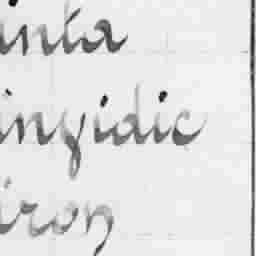 inta
ingidic
iron